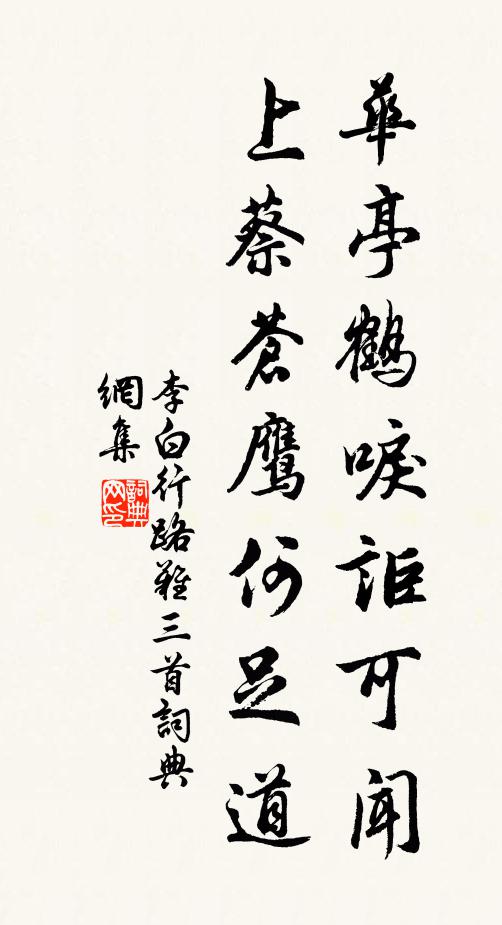 華亭鶴唳詎可聞
上蔡蒼鷹何足道
李白行路難三首詞典
網集
詞典網印